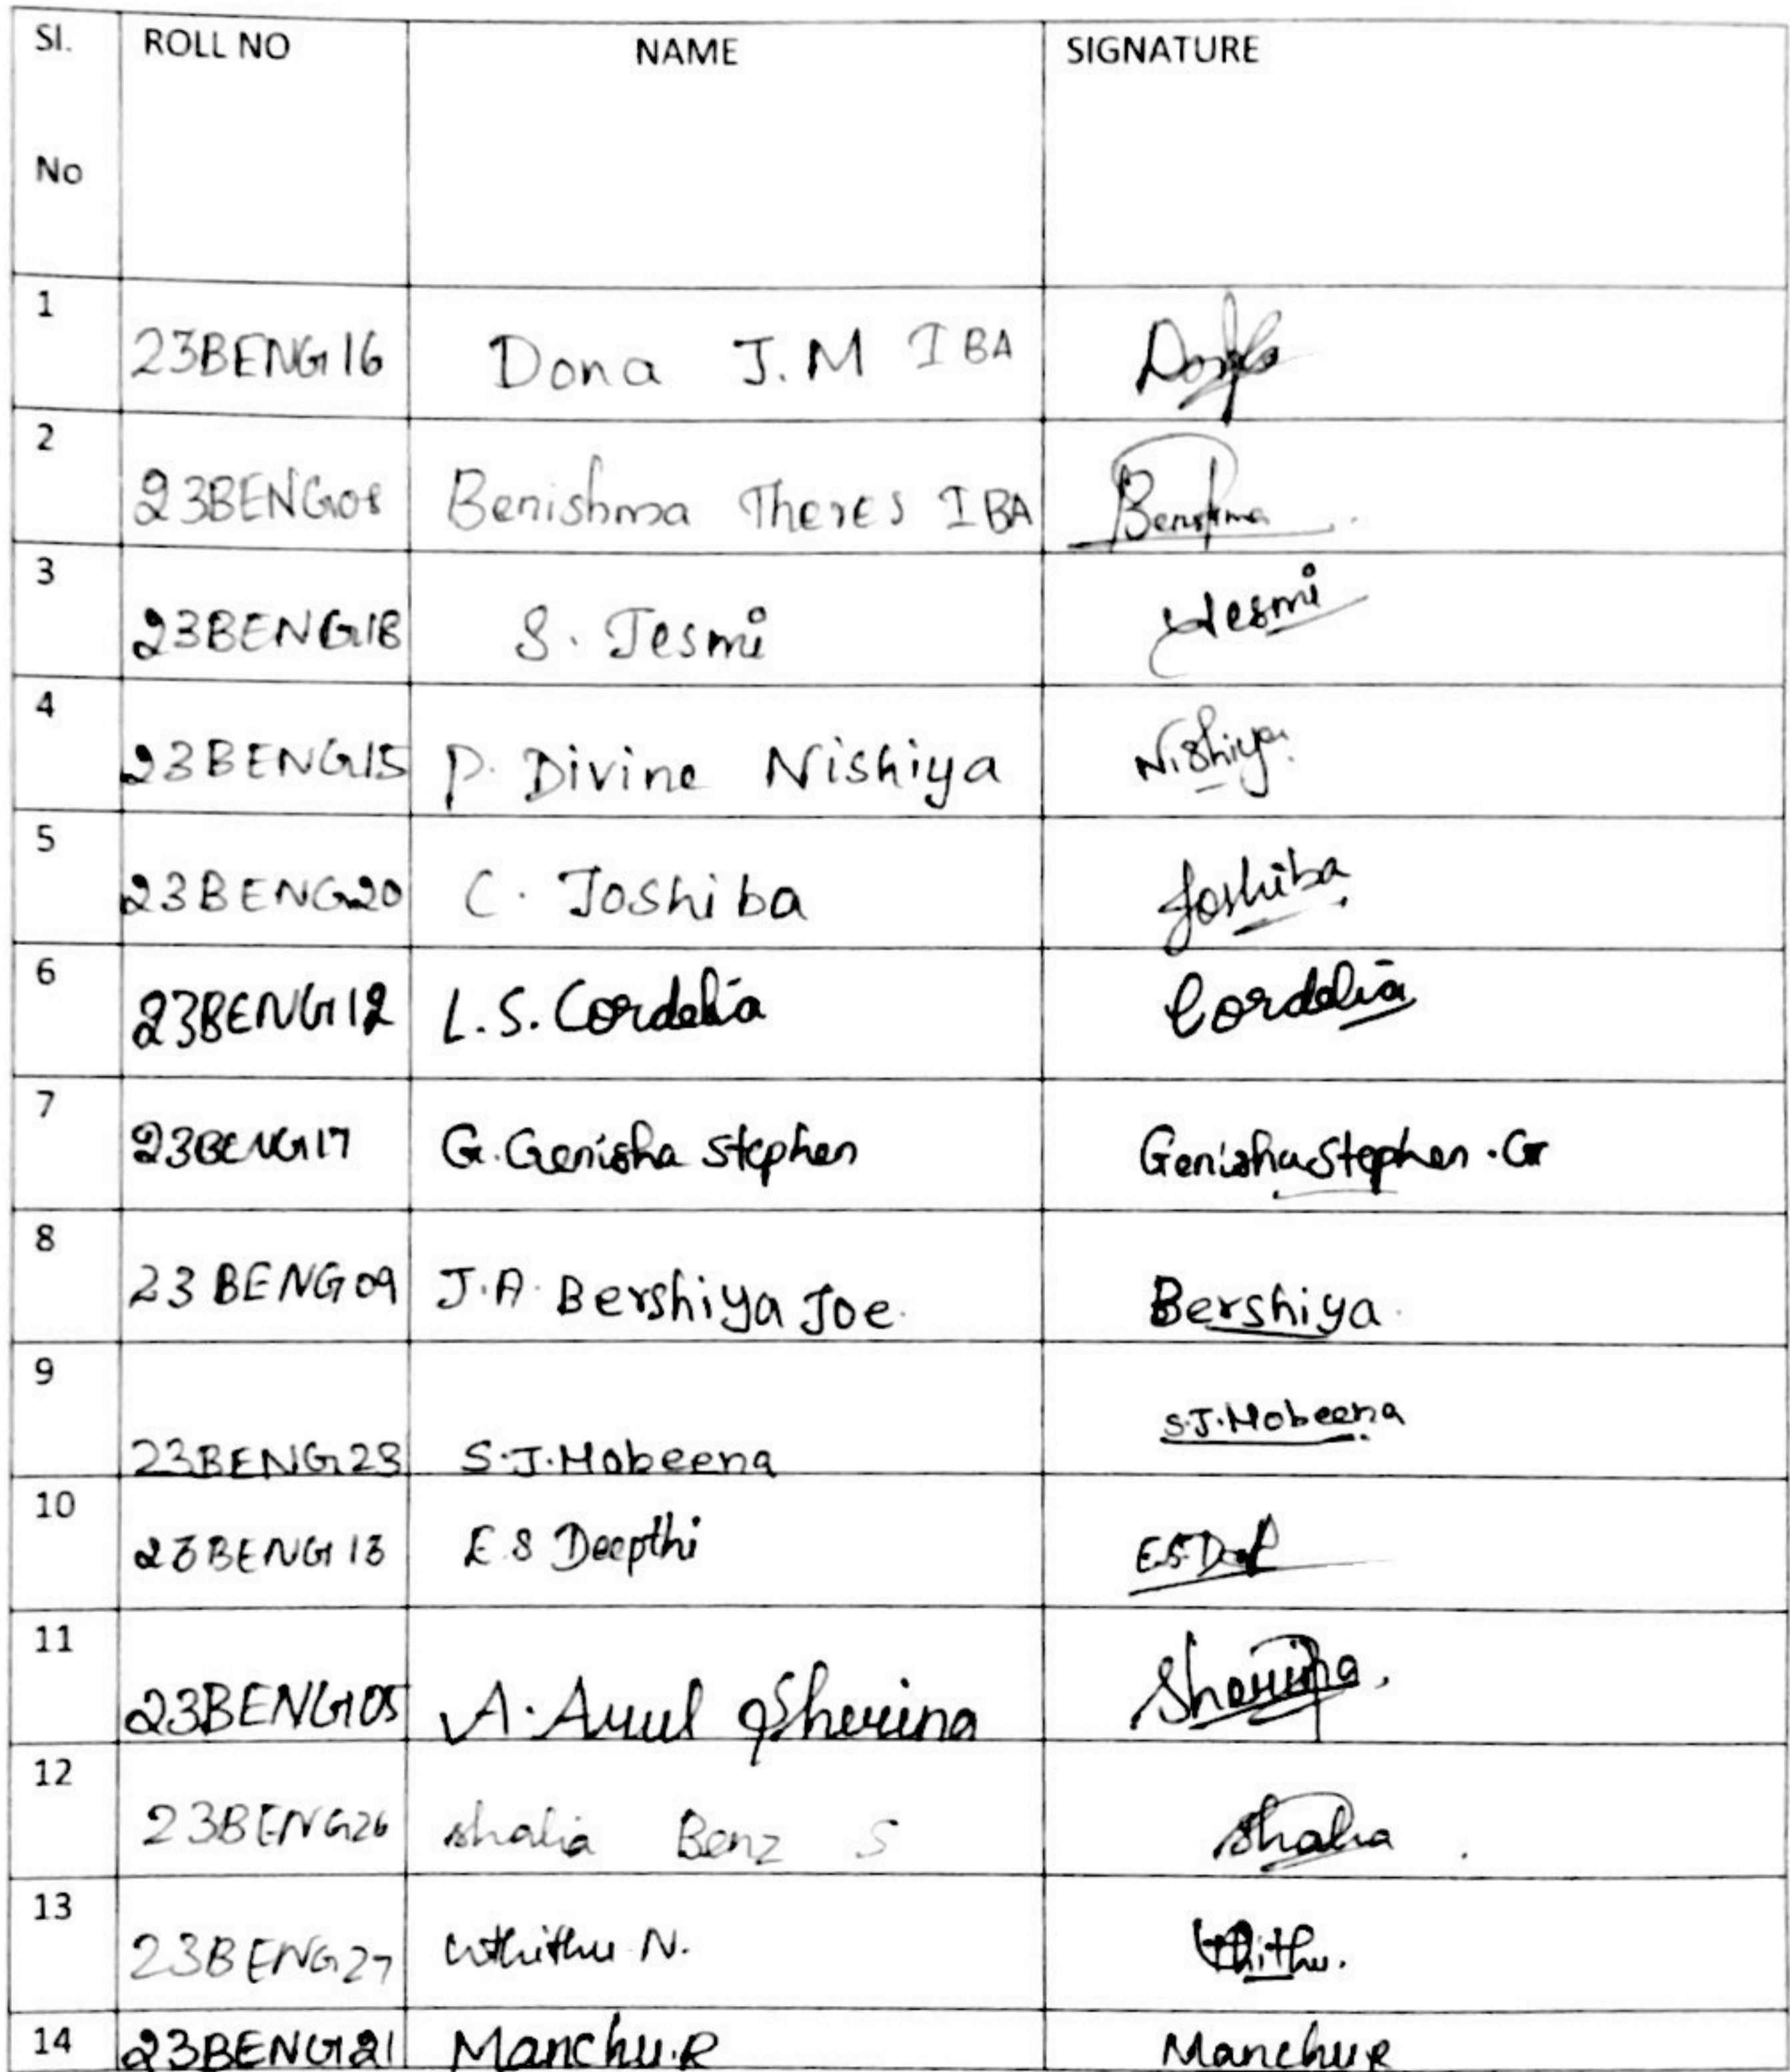 Sl. No ROLL NO NAME SIGNATURE
1 23BENG16 Dona J.M I BA
2 23BENG08 Benishma Theres I BA Benishma
3 23BENG18 S. Jesmi Jesmi
4 23BENG15 P. Divine Nishiya Nishiya
5 23BENG20 C. Joshiba Joshiba
6 23BENG12 L.S. Cordelia Cordelia
7 23BENG17 G. Genisha Stephen Genisha Stephen . G
8 23BENG09 J.A. Bershiya Joe. Bershiya.
9 23BENG23 S.J.Mobeena S.J.Mobeena
10 23BENG13 E.S Deepthi
11 23BENG05 A. Arul Sherina Sherina.
12 23BENG26 shalia Benz S Shalia
13 23BENG27 N.
14 23BENG21 Manchu.R Manchu R